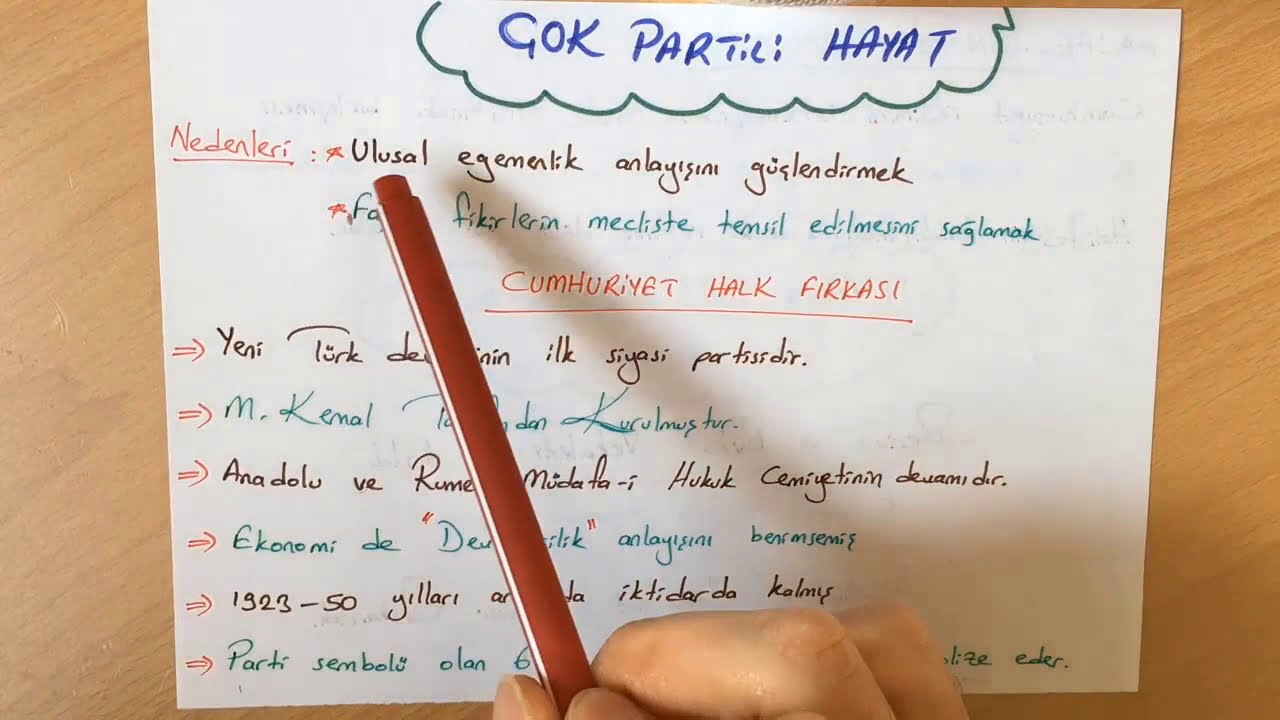 ÇOK PARTİLİ HAYAT
Nedenleri : * Ulusal egemenlik anlayışını güçlendirmek
* fikirlerin mecliste temsil edilmesini sağlamak
CUMHURİYET HALK FIRKASI
⇒ Yeni Türk ilk siyasi partisidir.
⇒ M. Kemal Kurulmuştur.
⇒ Anadolu ve Müdafa-i Hukuk Cemiyetinin devamıdır.
⇒ Ekonomi de anlayışını benimsemiş
⇒ 1923-50 yılları iktidarda kalmış
⇒ Parti sembolü olan 6 eder.